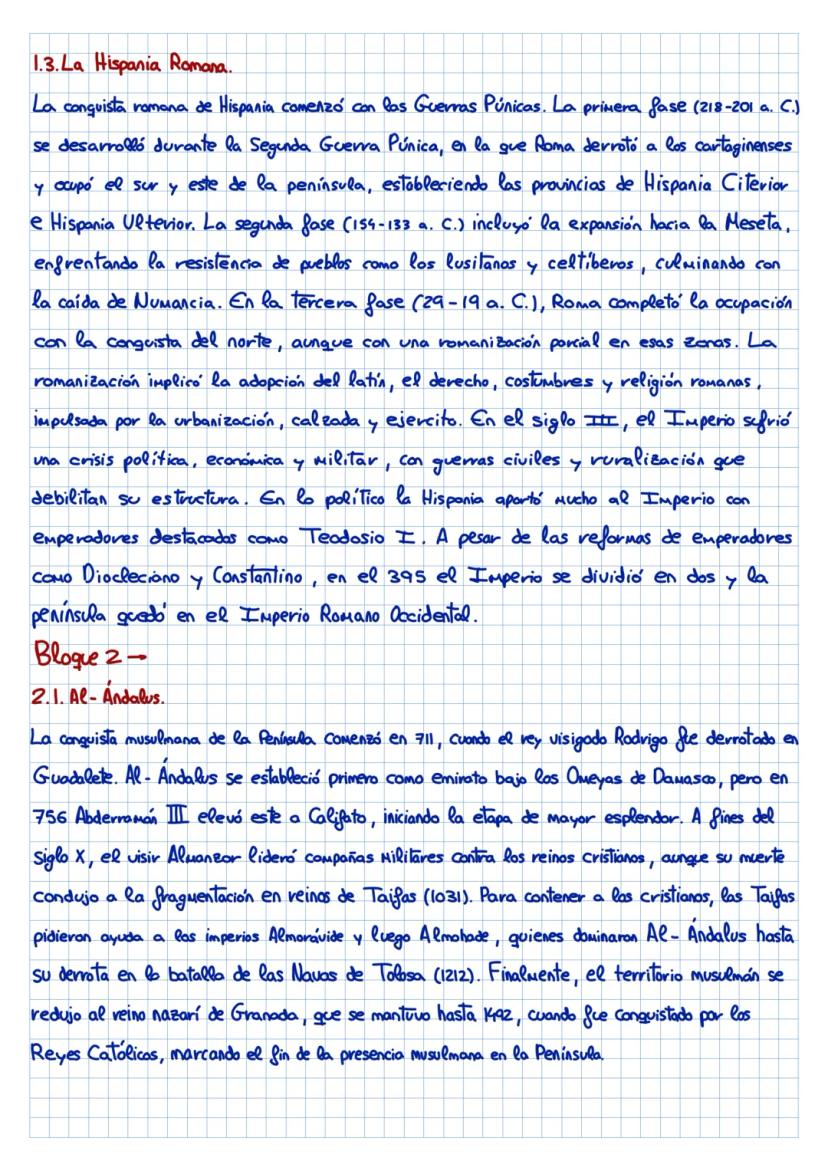 1.3. La Hispania Romana.
La conquista romana de Hispania comenzó con las Guerras Púnicas. La primera fase (218-201 a. C.)
se desarrolló durante la Segunda Guerra Púnica, en la que Roma derrotó a los cartaginenses
y ocupó el sur y este de la península, estableciendo las provincias de Hispania Citerior
e Hispania Ulterior. La segunda fase (154-133 a. C.) incluyó la expansión hacia la Meseta,
enfrentando la resistencia de pueblos como los lusitanos y celtíberos, culminando con
la caída de Numancia. En la tercera fase (29-19 a. C.), Roma completó la ocupación
con la conquista del norte, aunque con una romanización parcial en esas zonas. La
romanización implicó la adopción del latín, el derecho, costumbres y religión romanas,
impulsada por la urbanización, calzada y ejercito. En el siglo III, el Imperio sufrió
una crisis política, económica y militar, con guerras civiles y ruralización que
debilitan su estructura. En lo político la Hispania aportó mucho al Imperio con
emperadores destacados como Teodosio I. A pesar de las reformas de emperadores
como Diocleciano y Constantino, en el 395 el Imperio se dividió en dos y la
península quedó en el Imperio Romano Occidental.
Bloque 2 →
2.1. Al-Ándalus.
La conquista musulmana de la Península comenzó en 711, cuando el rey visigodo Rodrigo fue derrotado en
Guadalete. Al-Ándalus se estableció primero como emirato bajo los Omeyas de Damasco, pero en
756 Abderramán III elevó este a Califato, iniciando la etapa de mayor esplendor. A fines del
siglo X, el visir Almanzor lideró campañas militares contra los reinos cristianos, aunque su muerte
condujo a la fragmentación en reinos de Taifas (1031). Para contener a los cristianos, las Taifas
pidieron ayuda a los imperios Almorávide y luego Almohade, quienes dominaron Al-Ándalus hasta
su derrota en la batalla de las Navas de Tolosa (1212). Finalmente, el territorio musulmán se
redujo al reino nazarí de Granada, que se mantuvo hasta 1492, cuando fue conquistado por los
Reyes Católicos, marcando el fin de la presencia musulmana en la Península.